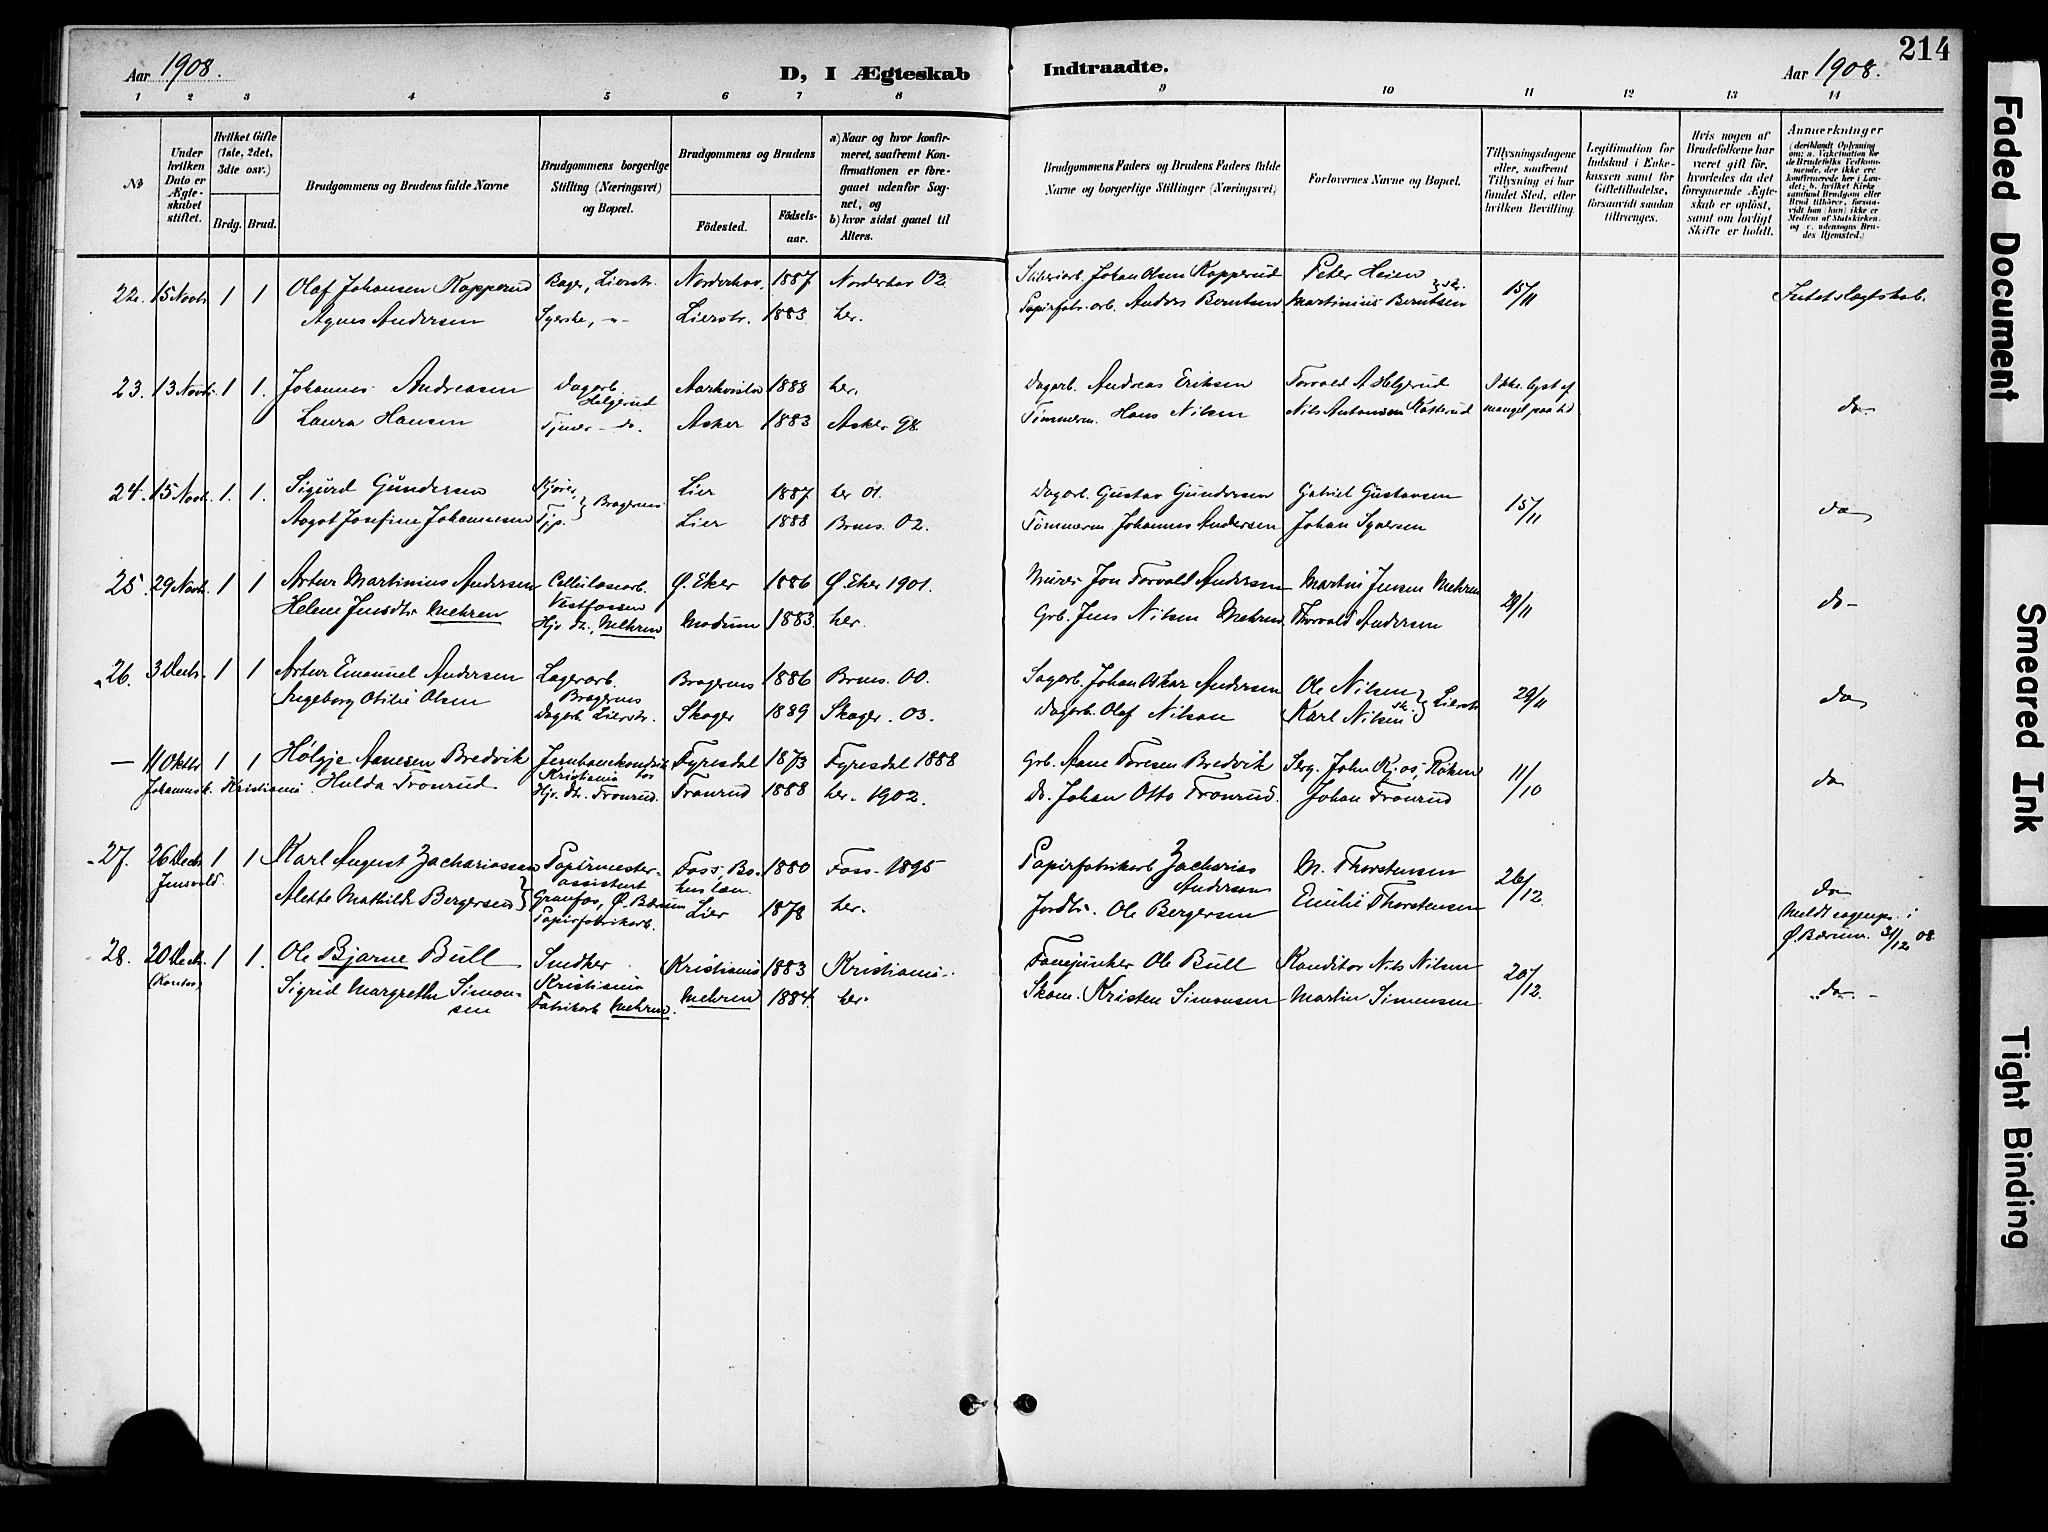 Aar 1908.
D, I Ægteskab
Indtraadte.
Aar 1908.
214
1 2 3 4 5 6 7 8 9 10 11 12 13 14
№
Under hvilken Dato er Ægteskabet stiftet.
Hvilket Gifte (1ste, 2det, 3dte osv.)
Brdg. Brud.
Brudgommens og Brudens fulde Navne
Brudgommens borgerlige Stilling (Næringsvei) og Bopæl.
Brudgommens og Brudens
Födested.
Födsels-aar.
a) Naar og hvor konfirmeret, saafremt Konfirmationen er foregaaet udenfor Sognet, og
b) hvor sidst gaaet til Alters.
Brudgommens Faders og Brudens Faders fulde Navne og borgerlige Stillinger (Næringsvei)
Forlovernes Navne og Bopæl.
Tillysningsdagene eller, saafremt Tillysning ei har fundet Sted, efter hvilken Bevilling.
Legitimation for Indskud i Enkekassen samt for Giftetilladelse, forsaavidt saadan tiltrænges.
Hvis nogen af Brudefolkene har været gift før, hvorledes da det foregaaende Ægteskab er oplöst, samt om lovligt Skifte er holdt.
Anmerkninger (deriblandt Oplysning om: a. Vakcination for de Brudefolks Vedkommende, der ikke ere konfirmerede her i Landet; b. hvilket Kirkesamfund Brudgom eller Brud tilhörer, forsaavidt han (hun) ikke er Medlem af Statskirken, og c. udensogns Brudes Hjemsted.)
22. 15 Novbr 1 1 Olaf Johansen Kopperud Bager, Lierstr. Norderhov, 1887 Norderhov 02 Johan Olsen Kopperud Peter Heien 15/11 Intet slagtskab.
Agnes Andersen Syerske, -"- Lierstr. 1883. her. Papirfabr.arb. Anders Berntsen Martinius Berntsen
23. 13 Novbr. 1 1. Johannes Andreasen Dagarb. Helgerud 1888 her. Dagarb. Andreas Eriksen Torvald A Helgerud Ikke lyst af do
Laura Hansen Tjener - do. Asker 1883 Asker 98. Tømmerm. Hans Nilsen Nils Antonsen Kotterud mangel paa tid
24. 15 Novb. 1. 1. Sigurd Gundersen Kjører, } Bragernes Lier 1887 her 01. Dagarb. Gustav Gundersen Gabriel Gustavsen 15/11 do
Aagot Josefine Johannesen Tjp. Lier 1888 Brns. 02. Tømmerm Johannes Andersen Johan Syversen
25. 29 Novb. 1 1 Artur Martinius Andersen Cellulosearb. Vestfossen Ø. Eker 1886 Ø. Eker 1901. Murer Jon Torvald Andersen Martin Jensen Mehren 29/11 do-
Helene Jensdtr Mehren Hjv. dt., Mehren Modum 1883. her. Grb. Jens Nilsen Mehren Thorvald Andersen
26. 3 Decbr. 1 1 Artur Emanuel Andersen Lagerarb. Bragernes Bragernes 1886 Brns. 00. Sagarb. Johan Oskar Andersen Ole Nilsen } Lierstr 29/11 do
Ingeborg Otilie Olsen Dagarb. Lierstr. Skoger 1889 Skoger. 03. Dagarb. Olaf Nilsen Karl Nilsen
— 11 Oktbr 1 1 Hølgje Aanesen Bredvik Jernbanekonduktør Kristiania Fyresdal 1873 Fyresdal 1888 Grb. Aane Toresen Bredvik Serg. John Kjos, Røken 11/10 do
Johannesk. Kristiania. Hulda Tronrud Hjv. dt. Tronrud. Tronrud 1888 her. 1902. Do. Johan Otto Tronrud. Johan Tronrud
27. 26 Decbr 1 1 Karl August Zachariassen Papirmesterassistent Foss, Bohuslän. 1880 Foss. 1895 Papirfabrikarb Zacharias Andersen M. Thorstensen 26/12 do
Jensvold. Alette Mathilde Bergersen } Granfos, Ø. Bærum Papirfabrikarb. Lier 1878 her. Jordbr. Ole Bergersen Emilie Thorstensen Meldt sognepr. i Ø. Bærum. 31/12 08.
28. 20 Decb. 1 1. Ole Bjarne Bull Snedker Kristiania Kristiania 1883 Kristiania. Fanejunker Ole Bull Konditor Nils Nilsen 20/12. do -
(Kontor) Sigrid Margrethe Simonsen Fabrikarb Mehren. Mehren 1884. her. Skom. Kristen Simonsen Martin Simensen
Faded Document
Smeared Ink
Tight Binding